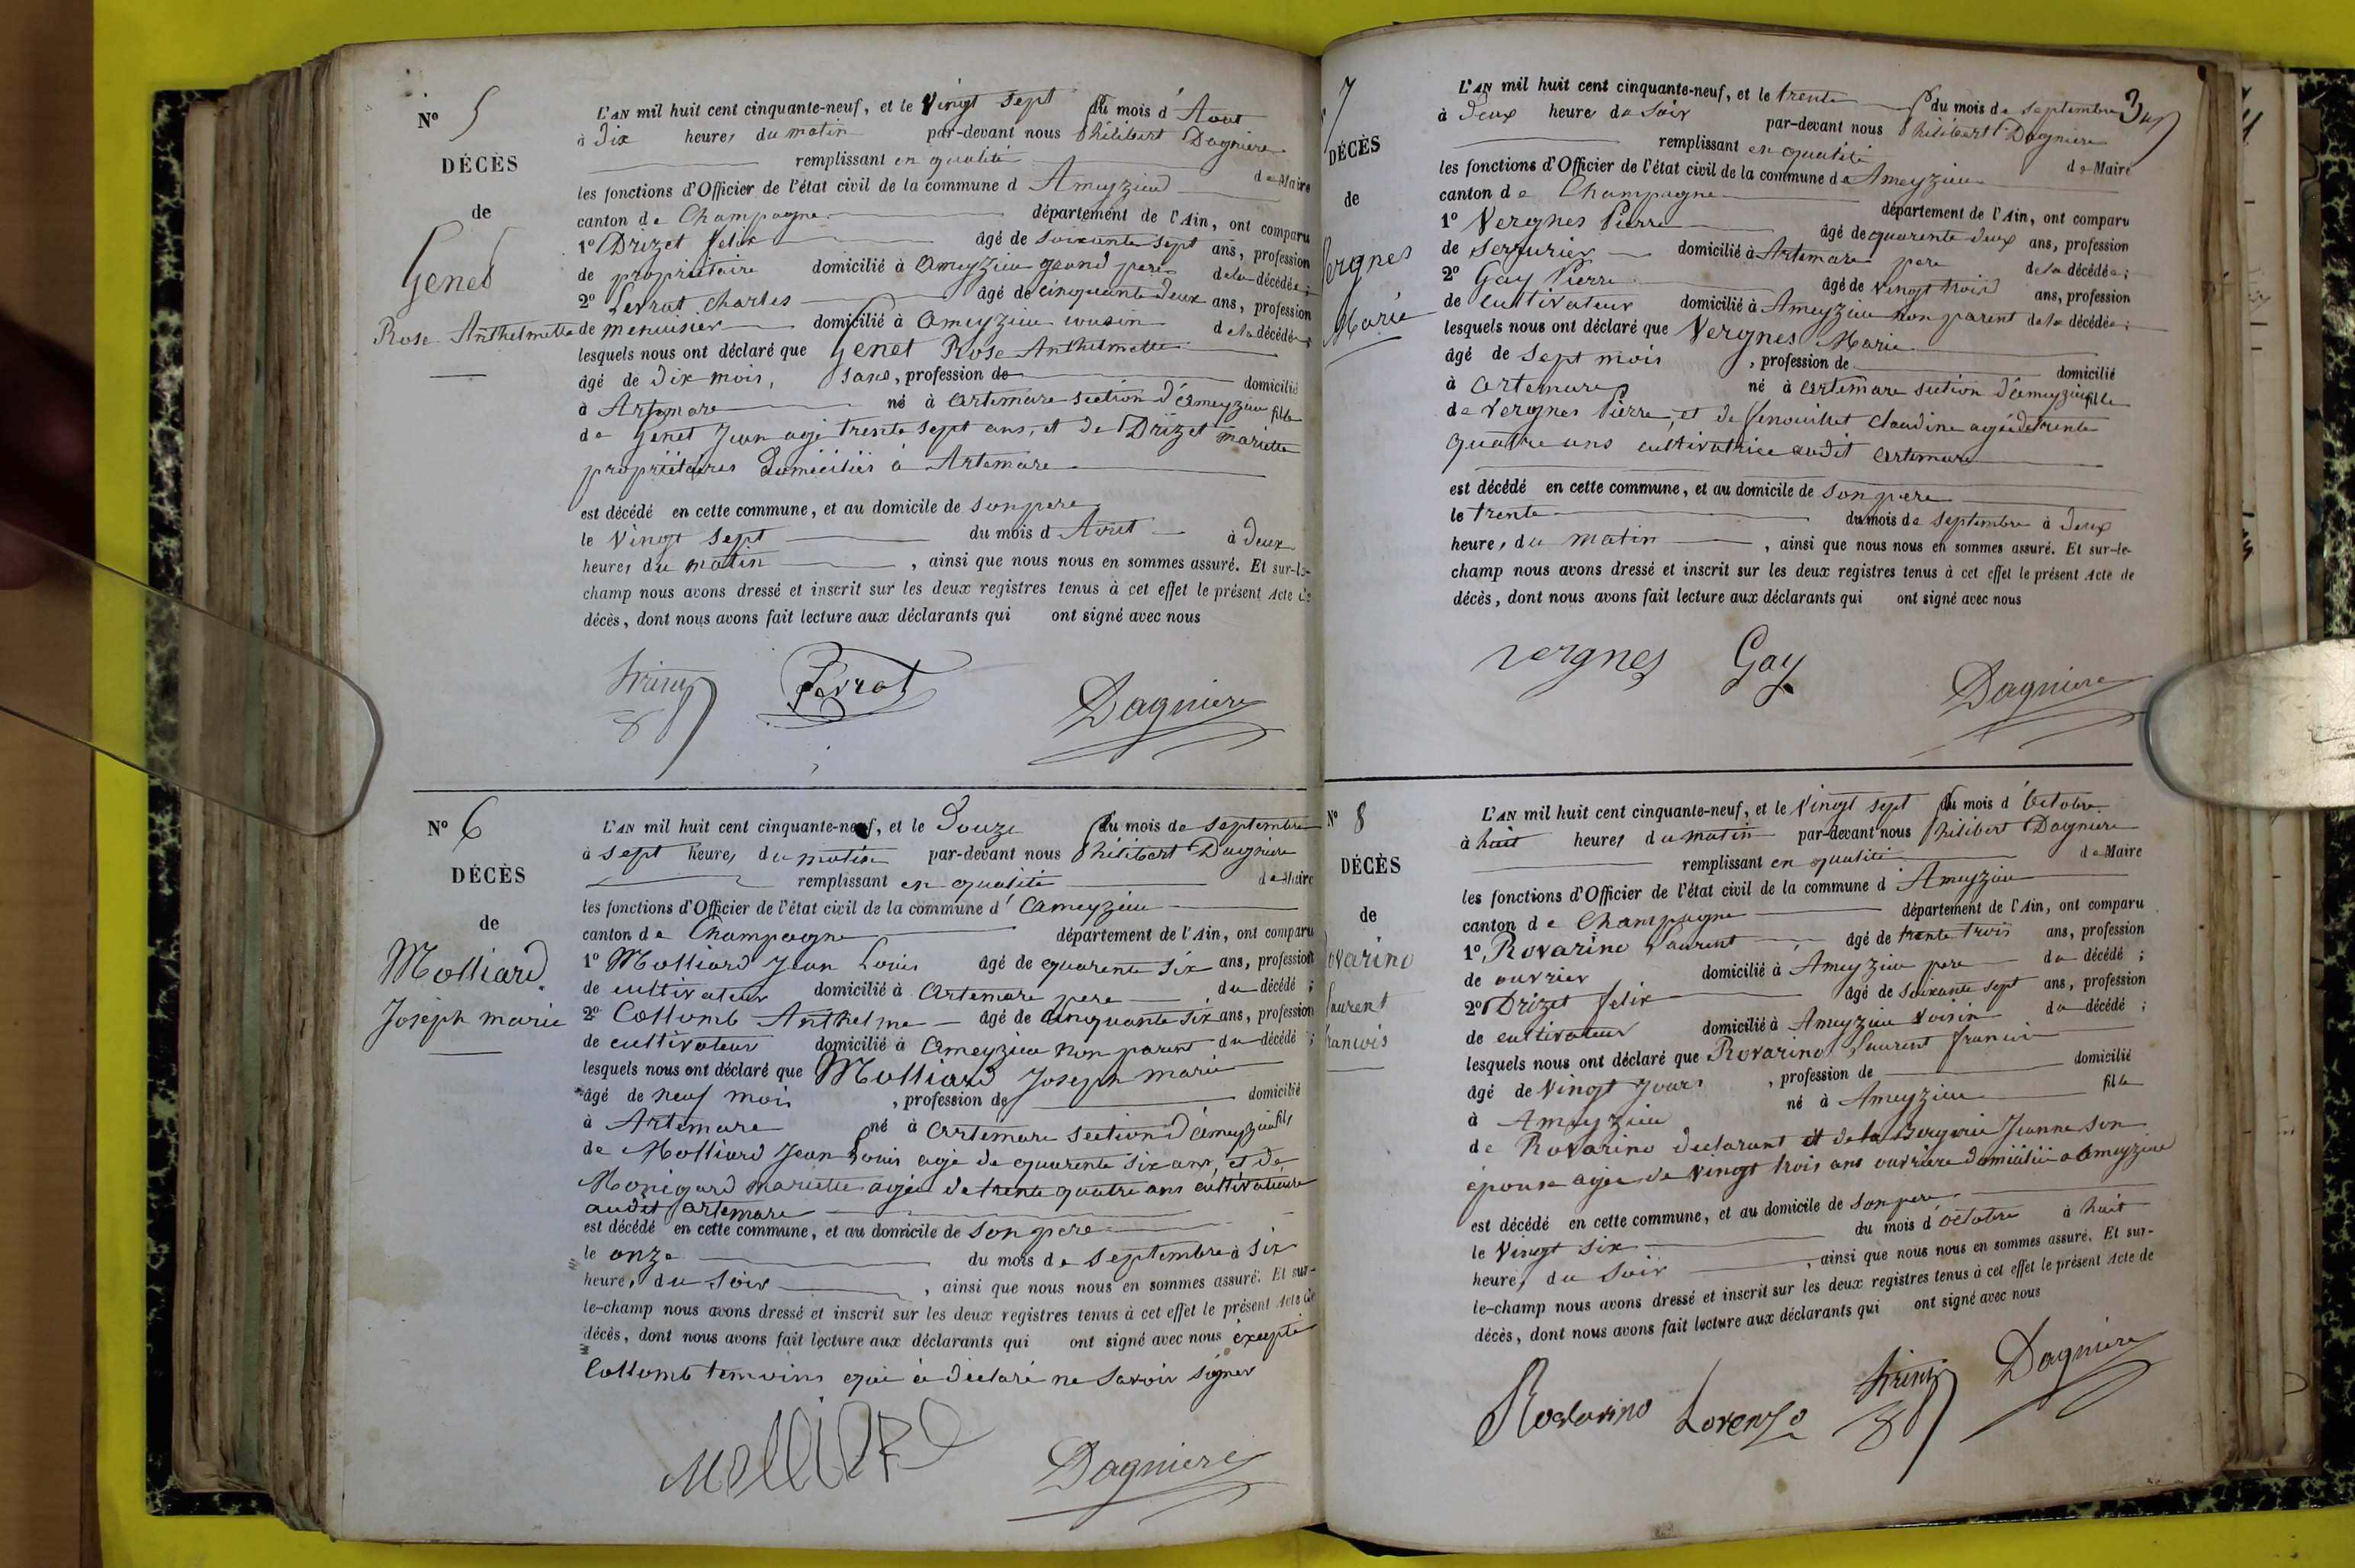 N° 5
DÉCÈS
de
Genet
Rose Anthelmette
L'AN mil huit cent cinquante-neuf, et le Vingt sept du mois d'Aout
à dix heures du matin par-devant nous Philibert Dagniere
remplissant en qualité de Maire
les fonctions d'Officier de l'état civil de la commune d Ameyzieu
canton de Champagne département de l'Ain, ont comparu
1° Drizet felix âgé de soixante sept ans, profession
de propriétaire domicilié à Ameyzieu grand pere de la décédée;
2° Perrat Charles âgé de cinquante deux ans, profession
de menuisier domicilié à Ameyzieu cousin de la décédée;
lesquels nous ont déclaré que Genet Rose Anthelmette
âgé de dix mois, sans, profession de domicilié
à Artemare né à Artemare section d'Ameyzieu fille
de Genet Jean agé trente sept ans, et de Drizet mariette
propriétaires domiciliés à Artemare
est décédé en cette commune, et au domicile de son pere
le Vingt sept du mois d Aout à deux
heures du matin, ainsi que nous nous en sommes assuré. Et sur-le-
champ nous avons dressé et inscrit sur les deux registres tenus à cet effet le présent Acte de
décès, dont nous avons fait lecture aux déclarants qui ont signé avec nous
Perrat Dagniere
N° 6
DÉCÈS
de
Molliard
Joseph marie
L'AN mil huit cent cinquante-neuf, et le Douze du mois de Septembre
à sept heures du matin par-devant nous Philibert Dagniere
remplissant en qualité de Maire
les fonctions d'Officier de l'état civil de la commune d'Ameyzieu
canton de Champagne département de l'Ain, ont comparu
1° Molliard Jean Louis âgé de quarente six ans, profession
de cultivateur domicilié à Artemare pere du décédé;
2° Collomb Anthelme âgé de cinquante six ans, profession
de cultivateur domicilié à Ameyzieu non parent du décédé;
lesquels nous ont déclaré que Molliard Joseph marie
âgé de neuf mois, profession de domicilié
à Artemare né à Artemare section d'Ameyzieu fils
de Molliard Jean Louis agé de quarente six ans, et de
Monigard mariette agée de trente quatre ans cultivateurs
audit Artemare
est décédé en cette commune, et au domicile de son pere
le onze du mois de septembre à six
heures du soir, ainsi que nous nous en sommes assuré. Et sur-
le-champ nous avons dressé et inscrit sur les deux registres tenus à cet effet le présent Acte de
décès, dont nous avons fait lecture aux déclarants qui ont signé avec nous excepté
Collomb temoins qui à declaré ne savoir signer
Molliard Dagniere
7
DÉCÈS
de
Vergnes
Marie
L'AN mil huit cent cinquante-neuf, et le trente du mois de septembre
à deux heures du soir par-devant nous Philibert Dagniere
remplissant en qualité de Maire
les fonctions d'Officier de l'état civil de la commune de Ameyzieu
canton de Champagne département de l'Ain, ont comparu
1° Vergnes Pierre âgé de quarente deux ans, profession
de serrurier domicilié à Artemare pere de la décédée;
2° Gay Pierre âgé de vingt trois ans, profession
de cultivateur domicilié à Ameyzieu non parent de la décédée;
lesquels nous ont déclaré que Vergnes Marie
âgé de sept mois, profession de domicilié
à Artemare né à Artemare section d'Ameyzieu fille
de Vergnes Pierre, et de Fenouillet Claudine agée de trente
quatre ans cultivatrice audit Artemare
est décédé en cette commune, et au domicile de son pere
le trente du mois de septembre à deux
heures du matin, ainsi que nous nous en sommes assuré. Et sur-le-
champ nous avons dressé et inscrit sur les deux registres tenus à cet effet le présent Acte de
décès, dont nous avons fait lecture aux déclarants qui ont signé avec nous
Vergnes Gay Dagniere
N° 8
DÉCÈS
de
Rovarino
Laurent
francois
L'AN mil huit cent cinquante-neuf, et le Vingt sept du mois d'Octobre
à huit heures du matin par-devant nous Philibert Dagniere
remplissant en qualité de Maire
les fonctions d'Officier de l'état civil de la commune d'Ameyzieu
canton de Champagne département de l'Ain, ont comparu
1° Rovarino Laurent âgé de trente trois ans, profession
de ouvrier domicilié à Ameyzieu pere du décédé;
2° Drizet felix âgé de soixante sept ans, profession
de cultivateur domicilié à Ameyzieu voisin du décédé;
lesquels nous ont déclaré que Rovarino Laurent francois
âgé de Vingt jours, profession de domicilié
à Ameyzieu né à Ameyzieu fille
de Rovarino declarant et de la Bergerie Jeanne son
épouse agée de vingt trois ans ouvriere domiciliée a Ameyzieu
est décédé en cette commune, et au domicile de son pere
le Vingt six du mois d'octobre à huit
heures du soir, ainsi que nous nous en sommes assuré. Et sur-
le-champ nous avons dressé et inscrit sur les deux registres tenus à cet effet le présent Acte de
décès, dont nous avons fait lecture aux déclarants qui ont signé avec nous
Rovarino Lorenzo Dagniere